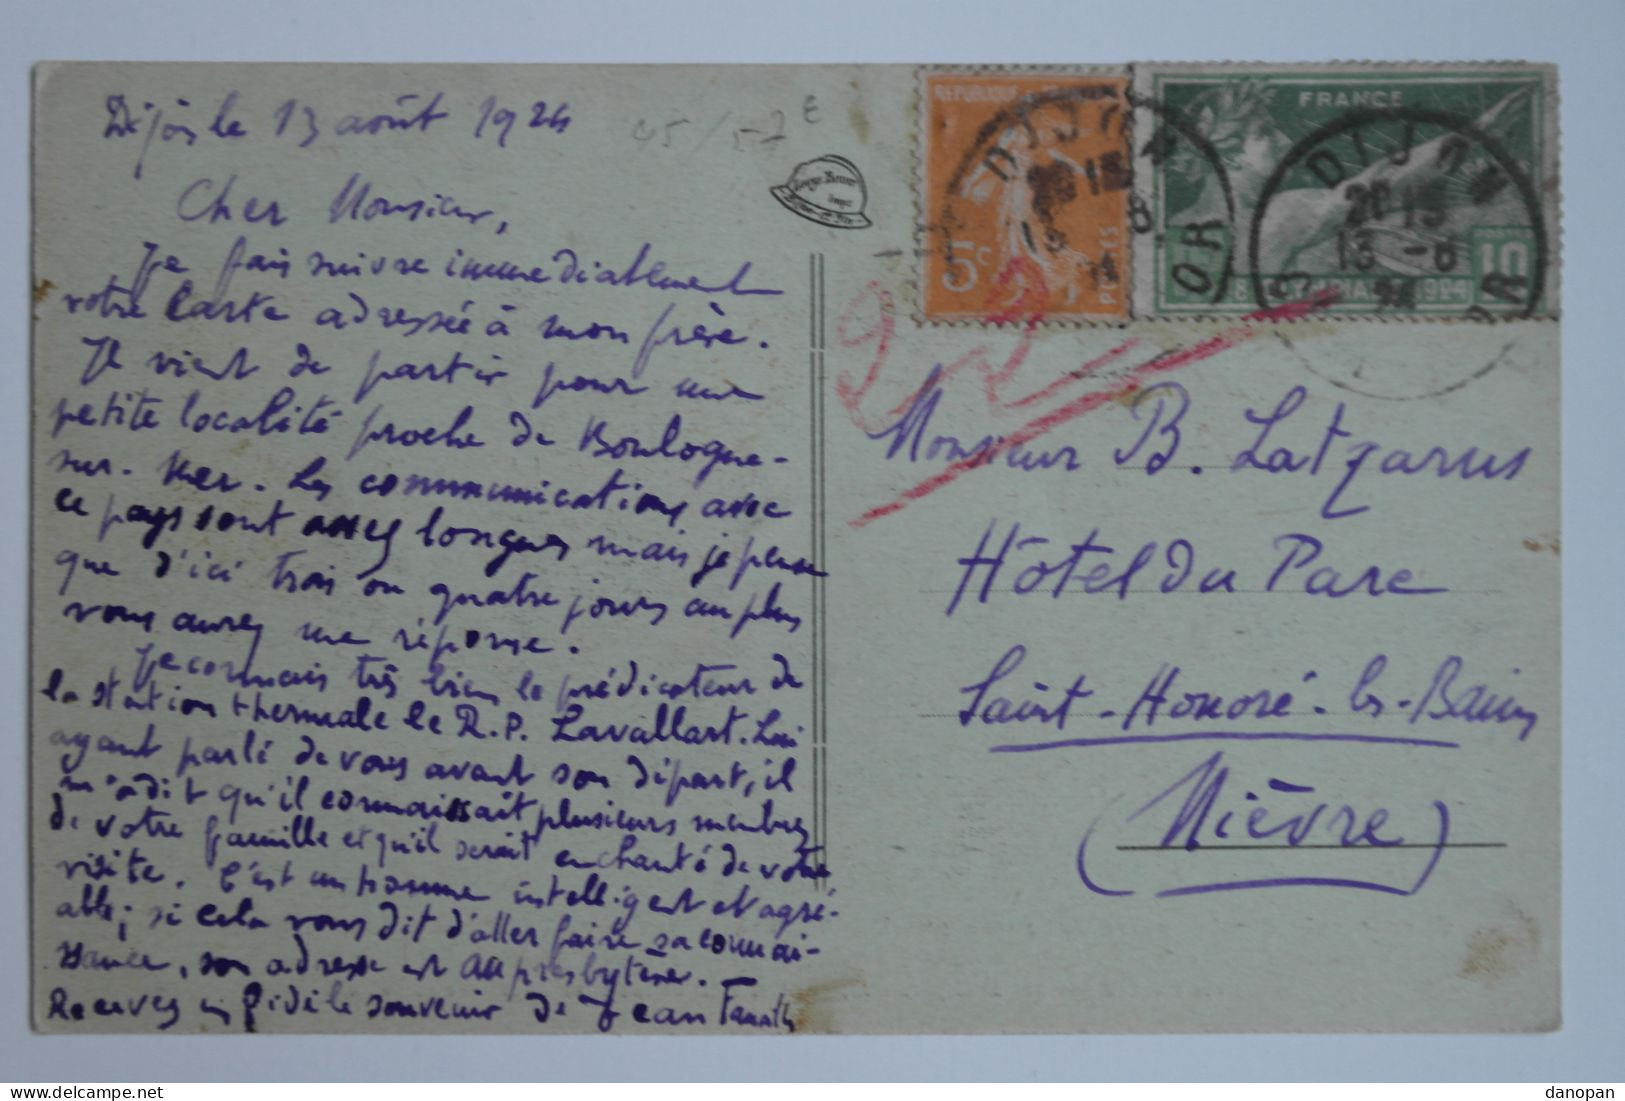 Dijon le 13 août 1924
45/57 E
Cher Monsieur,
Je fais suivre immediatement
votre carte adressée à mon frère.
Il vient de partir pour une
petite localité proche de Boulogne-
sur-Mer. Les communications avec
ce pays sont assez longues mais je pense
que d'ici trois ou quatre jours au plus
vous aurez une réponse.
Je connais très bien le prédicateur de
la station thermale le R.P. Lavallart. Lui
ayant parlé de vous avant son départ, il
m'a dit qu'il connaissait plusieurs membres
de votre famille et qu'il serait enchanté de votre
visite. C'est un homme intelligent et agré-
able; si cela vous dit d'aller faire sa connai-
ssance, son adresse est au presbytère.
Recevez le fidèle souvenir de Jean
REPUBLIQUE
5c
POSTES
FRANCE
10
1924
DIJON
20 15
13 -8
24
OR
Monsieur B. Latzarus
Hôtel du Parc
Saint-Honoré-les-Bains
(Nièvre)
danopan